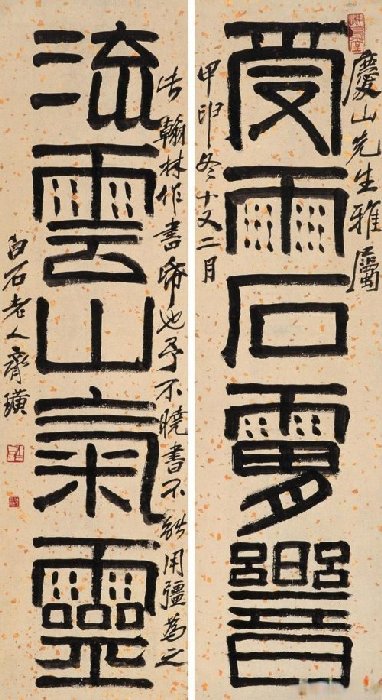 慶山先生雅屬
受雨石響
甲申冬十又二月
此翰林作書帋也予不曉書不能用彊為之
流雲山氣靈
白石老人齊璜